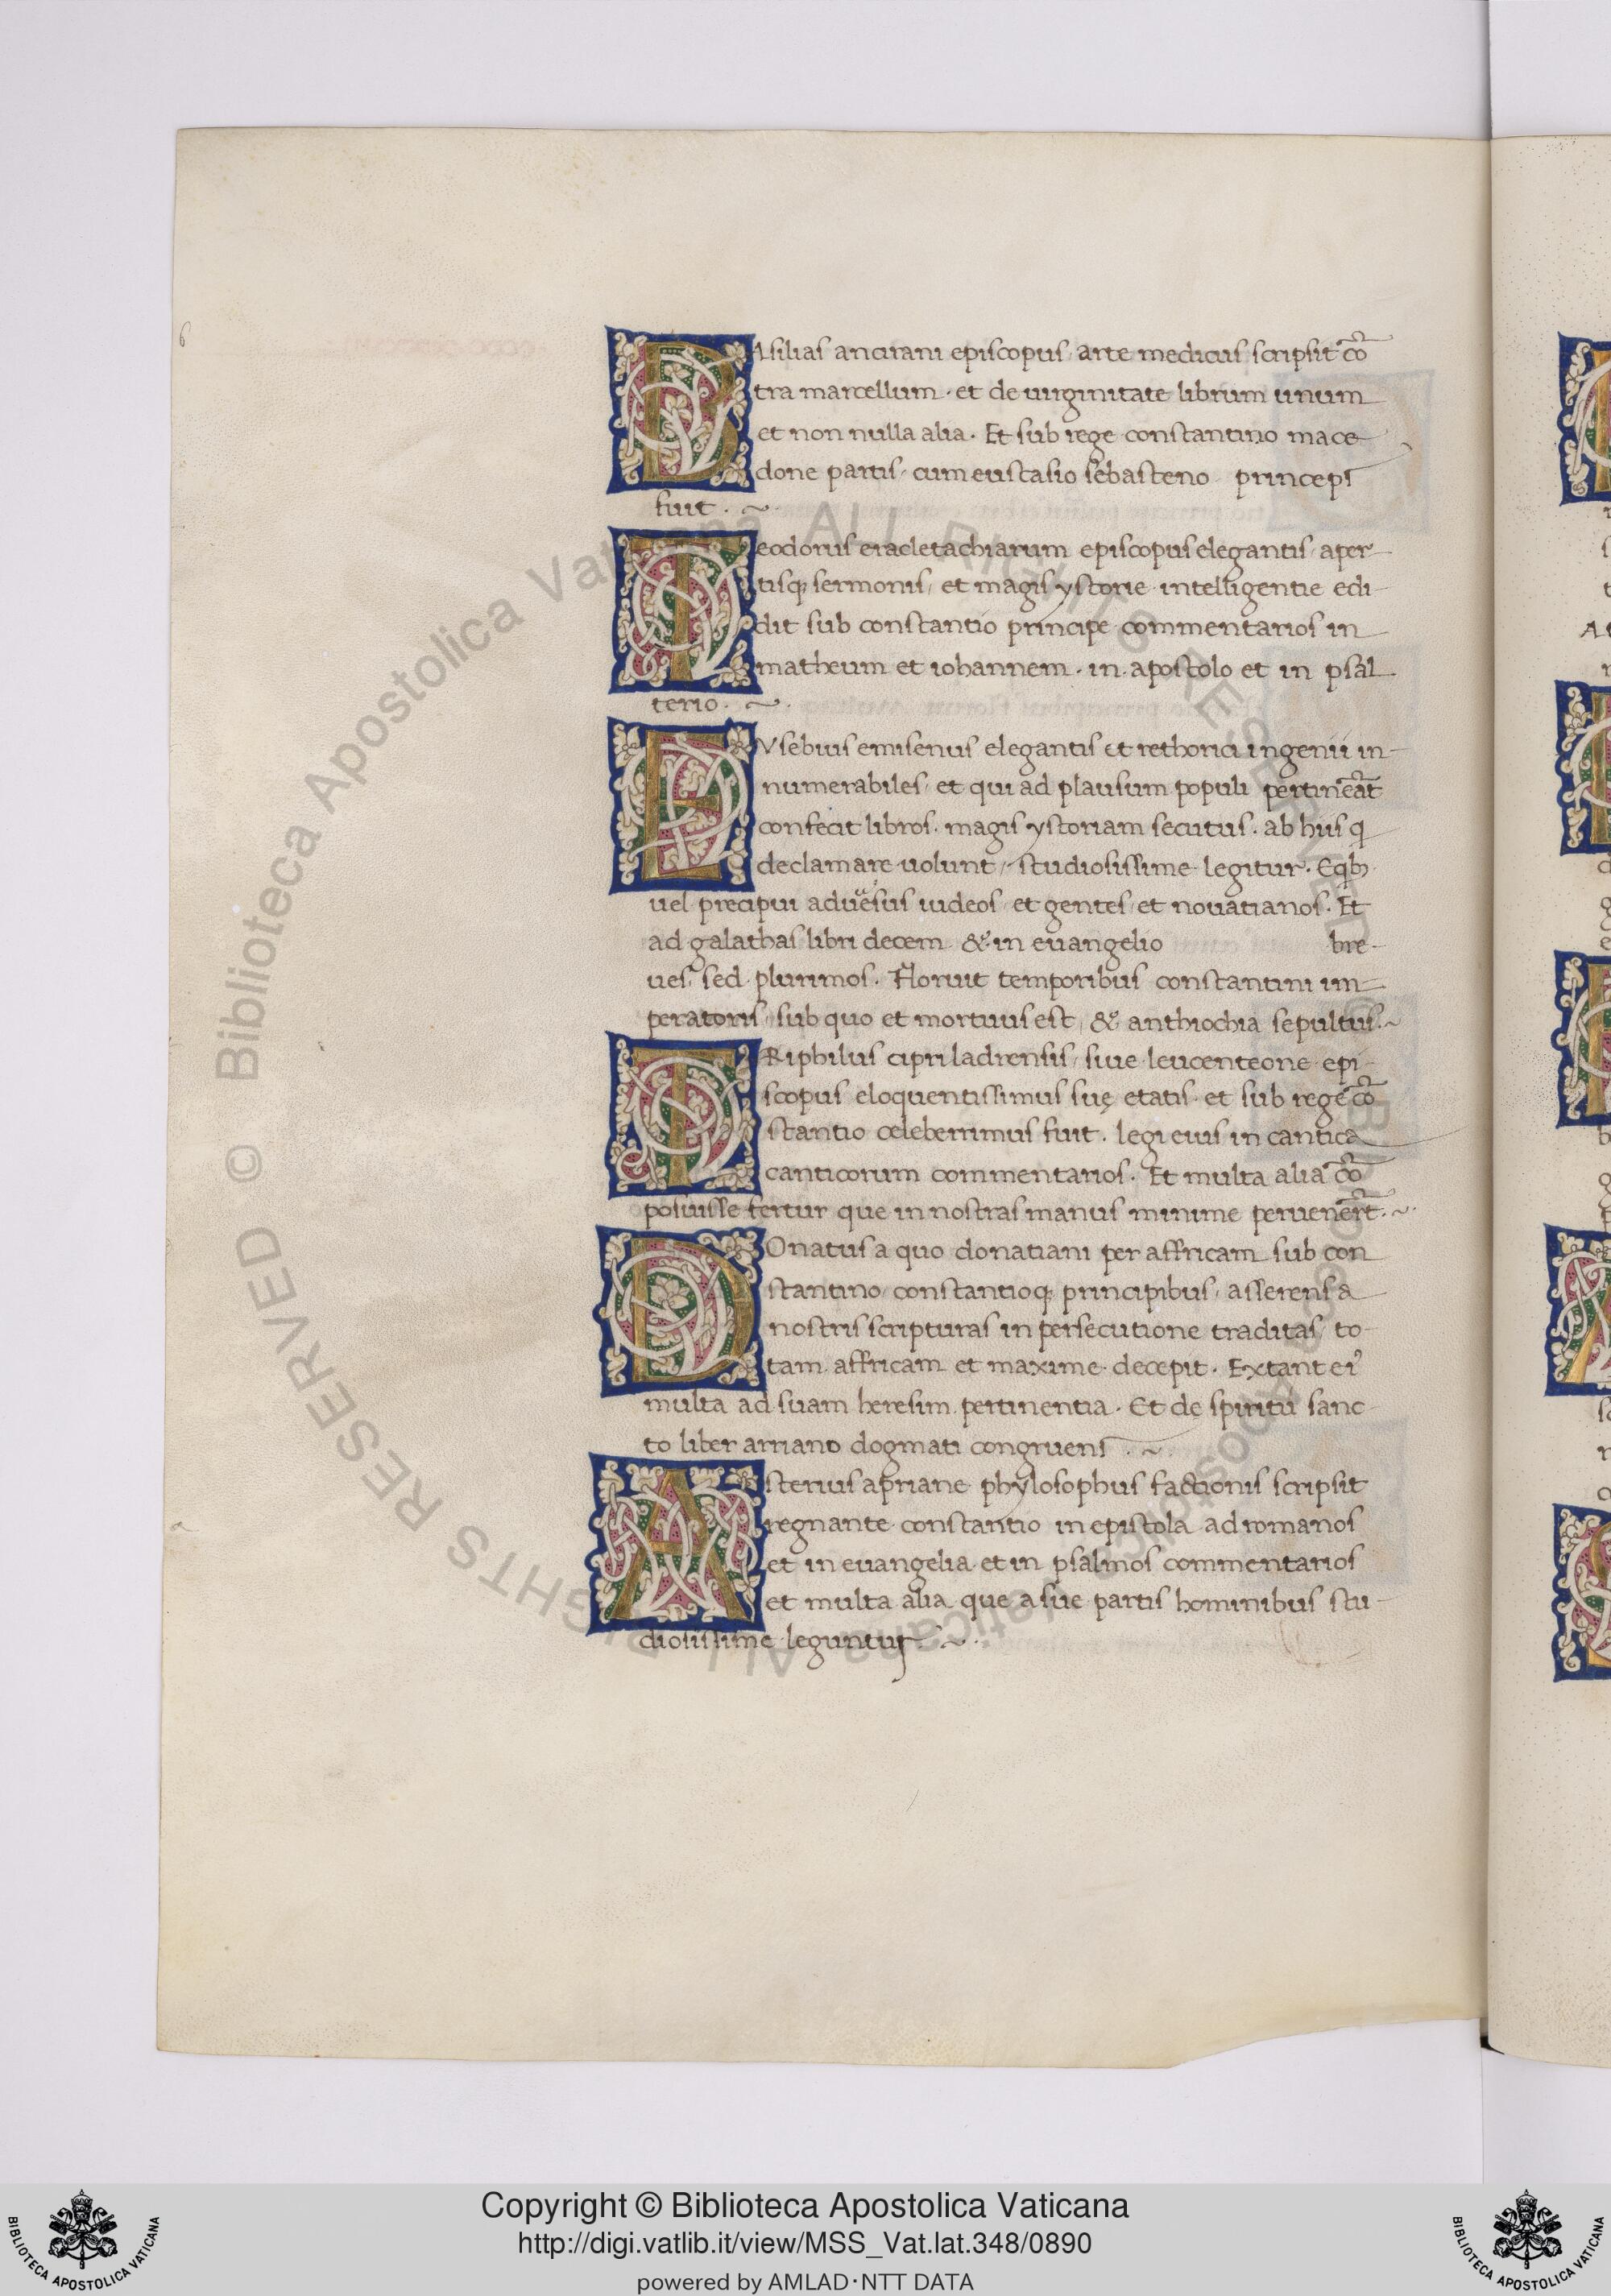 BAsilias ancirani episcopus arte medicus scripsit cō
tra marcellum · et de uirginitate librum unum
et non nulla alia · Et sub rege constantino mace
done partis cum eustasio sebasteno princeps
fuit · ~
TEodorus eracletachiarum episcopus elegantis aper-
tisq; sermonis et magis ystorie intelligentie edi-
dit sub constantio principe commentarios in
matheum et iohannem · in apostolo et in psal
terio · ~
EVsebius emisenus elegantis et rethorici ingenii in-
numerabiles et qui ad plausum populi pertineāt
confecit libros · magis ystoriam secutus · ab hiis q
declamare uolunt studiosissime legitur · Eqb;
uel precipui aduersus iudeos et gentes et nouatianos · Et
ad galathas libri decem & in euangelio bre-
ues sed plurimos · Floruit temporibus constantini im-
peratoris sub quo et mortuus est & anthiochia sepultus · ~
TRiphilus cipri ladrensis siue leucenteone epi-
scopus eloquentissimus suę etatis · et sub rege cō
stantio celeberrimus fuit · legi eius in cantica
canticorum commentarios · Et multa alia cō
posuisse fertur que in nostras manus minime peruenert̄ · ~
DOnatus a quo donatiani per affricam sub con
stantino constantioq; principibus asserens a
nostris scripturas in persecutione traditas to-
tam affricam et maxime decepit · Extant ei'
multa ad suam heresim pertinentia · Et de spiritu sanc-
to liber arriano dogmati congruens · ~
Asterius apriane phylosophus factionis scripsit
regnante constantio in epistola ad romanos
et in euangelia et in psalmos commentarios
et multa alia que a sue partis hominibus stu-
diosissime leguntur ~ ·
© Biblioteca Apostolica Vaticana ALL RIGHTS RESERVED
© Biblioteca Apostolica Vaticana ALL RIGHTS RESERVED
Copyright © Biblioteca Apostolica Vaticana
http://digi.vatlib.it/view/MSS_Vat.lat.348/0890
powered by AMLAD·NTT DATA
BIBLIOTECA APOSTOLICA VATICANA
BIBLIOTECA APOSTOLICA VATICANA